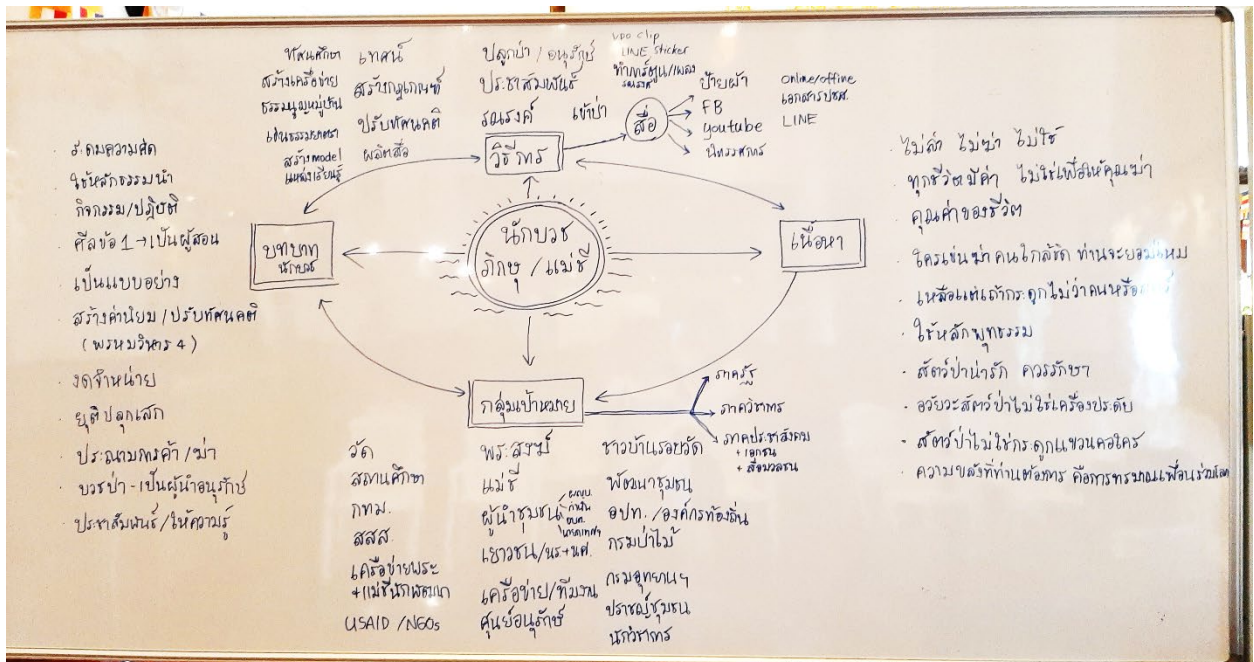 ทัศนศึกษา
สร้างเครือข่าย
ธรรมนูญหมู่บ้าน
เดินธรรมยาตรา
สร้าง model
แหล่งเรียนรู้
เทศน์
สร้างกฎเกณฑ์
ปรับทัศนคติ
ผลิตสื่อ
ปลูกป่า / อนุรักษ์
ประชาสัมพันธ์
รณรงค์ เข้าป่า
วิธีการ
VDO clip
LINE sticker
ทำการ์ตูน/เพลง
รณรงค์
สื่อ
ป้ายผ้า
FB
youtube
นิทรรศการ
online/offine
เอกสารปชส.
LINE
ระดมความคิด
ใช้หลักธรรมนำ
กิจกรรม/ปฏิบัติ
ศีลข้อ 1 → เป็นผู้สอน
เป็นแบบอย่าง
สร้างค่านิยม / ปรับทัศนคติ
(พรหมวิหาร 4)
งดจำหน่าย
ยุติปลุกเสก
ประณามการค้า / ฆ่า
บวชป่า - เป็นผู้นำอนุรักษ์
ประชาสัมพันธ์ / ให้ความรู้
บทบาท
นักบวช
นักบวช
ภิกษุ / แม่ชี
เนื้อหา
· ไม่ล่า ไม่ฆ่า ไม่ใช้
· ทุกชีวิตมีค่า ไม่ใช่เพื่อให้คุณฆ่า
· คุณค่าของชีวิต
· ใครเข่นฆ่าคนใกล้ชิด ท่านจะยอมไหม
· เหลือแต่เถ้ากระดูกไม่ว่าคนหรือ
· ใช้หลักพุทธรรม
· สัตว์ป่าน่ารัก ควรรักษา
· อวัยวะสัตว์ป่าไม่ใช่เครื่องประดับ
· สัตว์ป่าไม่ใช่กระดูกแขวนคอใคร
· ความขลังที่ท่านต้องการ คือการทรมาณเพื่อนร่วมโลก
กลุ่มเป้าหมาย
ภาครัฐ
ภาควิชาการ
ภาคประชาสังคม
+ เอกชน
+ สื่อมวลชน
วัด
สถานศึกษา
กทม.
สสส.
เครือข่ายพระ
+แม่ชีนักพัฒนา
USAID / NGOs
พระสงฆ์
แม่ชี
ผู้นำชุมชน
ผญบ.
กำนัน
อบต.
เยาวชน/นร.+นศ.
เครือข่าย/ทีมงาน
ศูนย์อนุรักษ์
ชาวบ้านรอบวัด
พัฒนาชุมชน
อปท. / องค์กรท้องถิ่น
กรมป่าไม้
กรมอุทยานฯ
ปราชญ์ชุมชน
นักวิชาการ